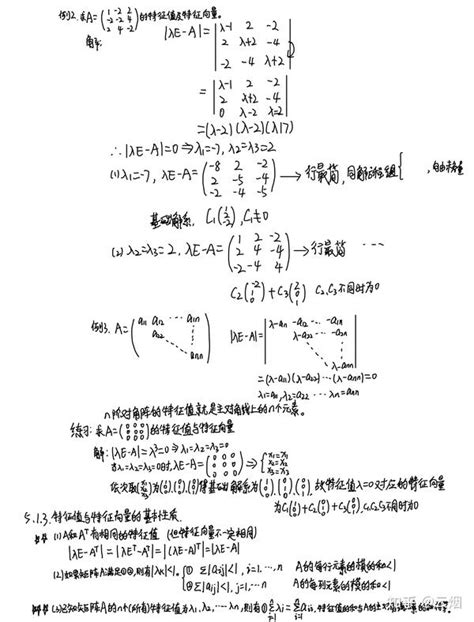 例2. 求A=(1 -2 2; -2 -2 4; 2 4 -2)的特征值及特征向量。
解: |λE-A|= |λ-1 2 -2; 2 λ+2 -4; -2 -4 λ+2|
= |λ-1 2 -2; 2 λ+2 -4; 0 λ-2 λ-2|
=(λ-2)(λ-2)(λ+7)
∴ |λE-A|=0 ⇒ λ₁=-7, λ₂=λ₃=2
(1) λ₁=-7, λE-A= (-8 2 -2; 2 -5 -4; -2 -4 -5) → 行最简, 同解方程组{ , 自由未知量
基础解系, C₁(1; 2; -2), C₁≠0
(2) λ₂=λ₃=2, λE-A= (1 2 -2; 2 4 -4; -2 -4 4) → 行最简 ...
C₂(-2; 1; 0)+C₃(2; 0; 1) C₂、C₃不同时为0
例3. A=(a₁₁ a₁₂ ... a₁ₙ; a₂₂ ...; aₙₙ) |λE-A|= |λ-a₁₁ -a₁₂ ... -a₁ₙ; λ-a₂₂ ... -a₂ₙ; λ-aₙₙ|
=(λ-a₁₁)(λ-a₂₂)...(λ-aₙₙ)=0
λ₁=a₁₁, λ₂=a₂₂ ... λₙ=aₙₙ
n阶对角阵的特征值就是主对角线上的n个元素。
练习: 求A=(0 0 0; 0 0 0; 0 0 0)的特征值与特征向量
解: |λE-A|=λ³=0 ⇒ λ₁=λ₂=λ₃=0
当λ₁=λ₂=λ₃=0时, λE-A=(0 0 0; 0 0 0; 0 0 0) ⇒ {x₁=x₁; x₂=x₂; x₃=x₃
依次取(x₁; x₂; x₃)为(1; 0; 0),(0; 1; 0),(0; 0; 1)得基础解系为(1; 0; 0),(0; 1; 0),(0; 0; 1), 故特征值λ=0对应的特征向量
为C₁(1; 0; 0)+C₂(0; 1; 0)+C₃(0; 0; 1), C₁,C₂,C₃不同时为0
5.1.3. 特征值与特征向量的基本性质.
(1) A和Aᵀ有相同的特征值 (但特征向量不一定相同)
|λE-Aᵀ|=|λEᵀ-Aᵀ|=|(λE-A)ᵀ|=|λE-A|
(2) 如果矩阵A满足①②, 则有|λₖ|<1. {① Σ|aᵢⱼ|<1, i=1,...n A的每行元素的模的和<1
② Σ|aᵢⱼ|<1, j=1,...n A的每列元素的模的和<1
(3) 已知矩阵A的n个(所有)特征值为λ₁,λ₂,...λₙ, 则有①Σλᵢ=Σaᵢᵢ, 特征值的和
知乎 @云烟